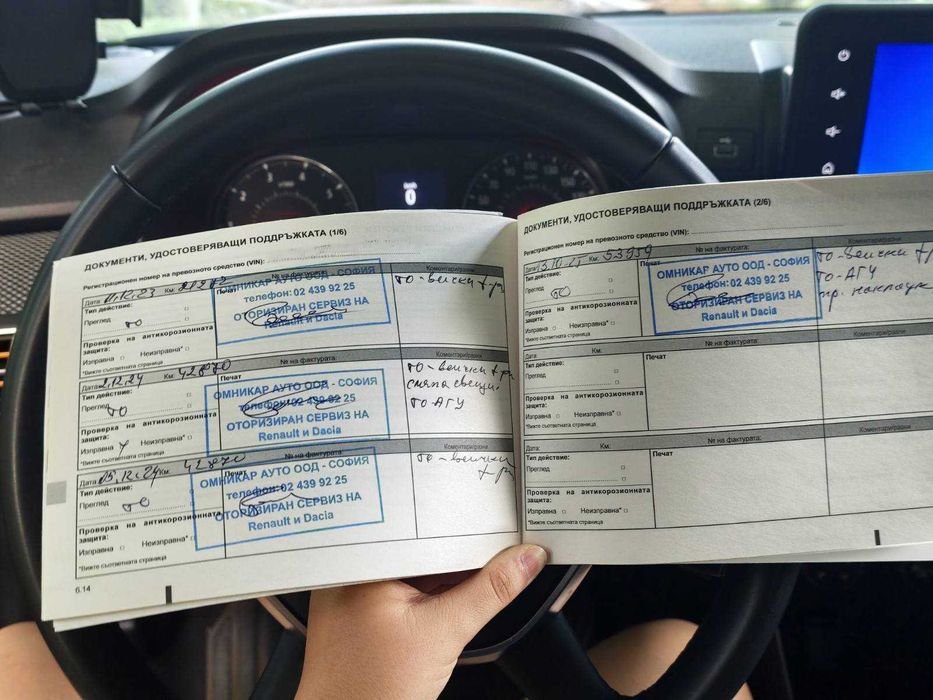 ДОКУМЕНТИ, УДОСТОВЕРЯВАЩИ ПОДДРЪЖКАТА (1/6)
Регистрационен номер на превозното средство (VIN):
Дата: Км: № на фактурата: Коментари/разни
Тип действие: Печат
Преглед ТО
Проверка на антикорозионната защита:
Изправна Неизправна*
*Вижте съответната страница
ОМНИКАР АУТО ООД - СОФИЯ
телефон: 02 439 92 25
ОТОРИЗИРАН СЕРВИЗ НА
Renault и Dacia
ТО - всички
Дата: 2.12.24 Км: 42870 № на фактурата: Коментари/разни
Тип действие: Печат
Преглед ТО
Проверка на антикорозионната защита:
Изправна Неизправна*
*Вижте съответната страница
ОМНИКАР АУТО ООД - СОФИЯ
телефон: 02 439 92 25
ОТОРИЗИРАН СЕРВИЗ НА
Renault и Dacia
ТО - всички
смяна свещи
ТО - АГУ
05.12.24 Км: 42870 № на фактурата: Коментари/разни
Тип действие: Печат
Преглед ТО
Проверка на антикорозионната защита:
Изправна Неизправна*
*Вижте съответната страница
ОМНИКАР АУТО ООД - СОФИЯ
телефон: 02 439 92 25
ОТОРИЗИРАН СЕРВИЗ НА
Renault и Dacia
ТО - всички
6.14
ДОКУМЕНТИ, УДОСТОВЕРЯВАЩИ ПОДДРЪЖКАТА (2/6)
Регистрационен номер на превозното средство (VIN):
Дата: 13.10.25 Км: 53959 № на фактурата: Коментари/разни
Тип действие: Печат
Преглед ТО
Проверка на антикорозионната защита:
Изправна Неизправна*
*Вижте съответната страница
ОМНИКАР АУТО ООД - СОФИЯ
телефон: 02 439 92 25
ОТОРИЗИРАН СЕРВИЗ НА
Renault и Dacia
ТО - всички
ТО - АГУ
Дата: Км: № на фактурата: Коментари/разни
Тип действие: Печат
Преглед
Проверка на антикорозионната защита:
Изправна Неизправна*
*Вижте съответната страница
Дата: Км: № на фактурата: Коментари/разни
Тип действие: Печат
Преглед
Проверка на антикорозионната защита:
Изправна Неизправна*
*Вижте съответната страница